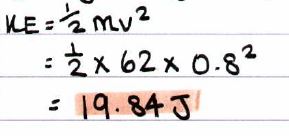 KE = ½ mv²
= ½ × 62 × 0.8²
= 19.84 J